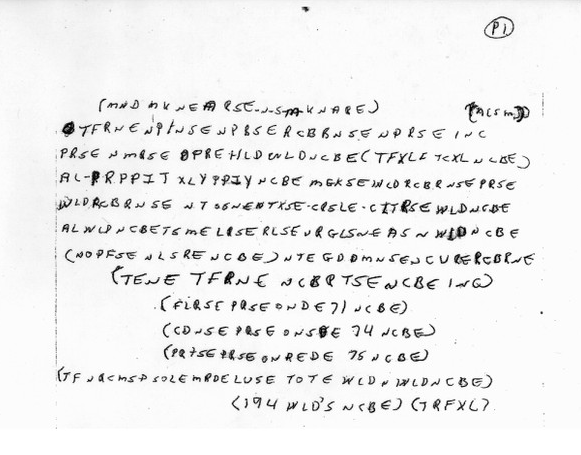 P1
(MND MKNEARSE-N-S-M-KNARE) (ACSM)
TFRNENPTNSENPBSERCBBRNSENPRSEINC
PRSENMRSEOPREHLDWLDNCBE(TFXLFTCXLNCBE)
AL-PRPPITXLYPPIYNCBEMGKSEINCDRCBRNSEPRSE
WLDRCBRNSENTSGNENTXSE-CRSLE-CITRSEWLDNCBE
ALWLDNCBETSMELRSERLSEURGLSNEASNWLDNCBE
(NOPFSENLSRENCBE)NTEGDDMNSENCURERCBRNE
(TENETFRNENCBRTSENCBEING)
(FLRSEPRSEONDE71NCBE)
(CDNSEPRSEONSDE74NCBE)
(PRTSEPRSEONREDE75NCBE)
(TFNQCMSPSOLEMRDELUSETOTEWLDNWLDNCBE)
(194WLD'SNCBE)(TRFXL)